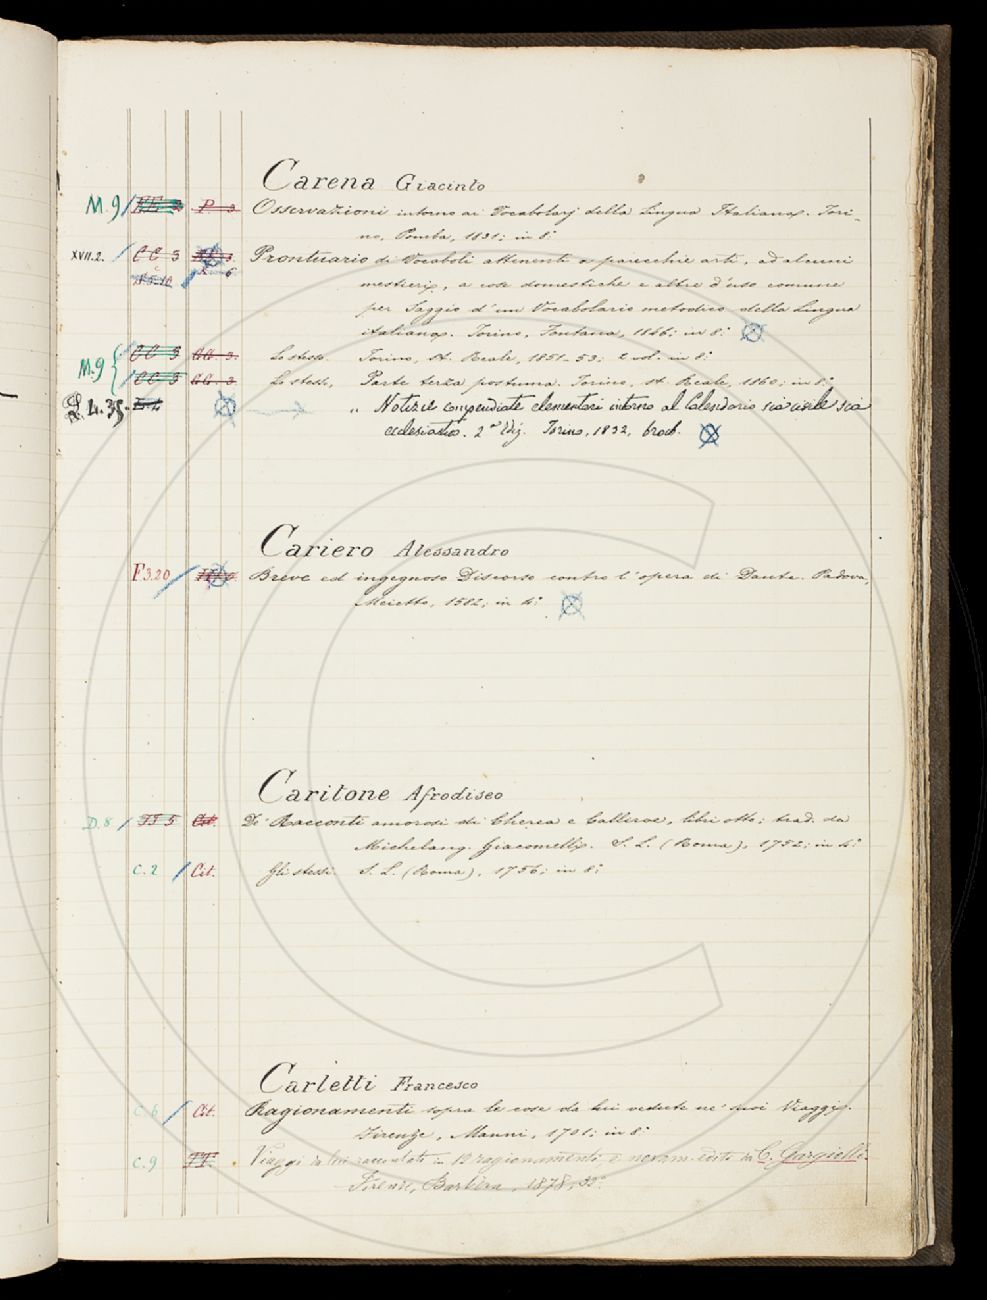 Carena Giacinto
M.9 P 3 Osservazioni intorno ai Vocabolarj della Lingua Italiana. Tori-
no, Pomba, 1831; in 8.°
XVII.2. CC 3 Prontuario di Vocaboli attenenti a parecchie arti, ad alcuni
mestieri, a cose domestiche e altre d'uso comune
per Saggio d'un Vocabolario metodico della Lingua
italiana. Torino, Fontana, 1846; in 8.°
M.9 CC 3 CC 3. Lo stesso. Torino, St. Reale, 1851-53; 2 vol. in 8.°
CC 3 CC 3 Lo stesso, Parte terza postuma. Torino, St. Reale, 1860; in 8.°
4.35. „ Notizie compendiate elementari intorno al Calendario sia civile sia
ecclesiastico. 2ª Ediz. Torino, 1832, broch.
Cariero Alessandro
F3.20 Breve ed ingegnoso Discorso contro l'opera di Dante. Padova,
Meietto, 1582; in 4.°
Caritone Afrodiseo
D.8 TT 5 Cit. De' Racconti amorosi di Cherea e Calliroe, libri otto; trad. da
Michelang. Giacomelli. S. L. (Roma), 1752; in 4.°
C.2 Cit. Gli stessi. S. L. (Roma), 1756; in 8.°
Carletti Francesco
C.6 Cit. Ragionamenti sopra le cose da lui vedute ne' suoi Viaggi.
Firenze, Manni, 1701; in 8.°
C.9 TT. Viaggi da lui raccontati in 12 ragionamenti, e novam. editi da C. Gargiolli.
Firenze, Barbèra, 1878,